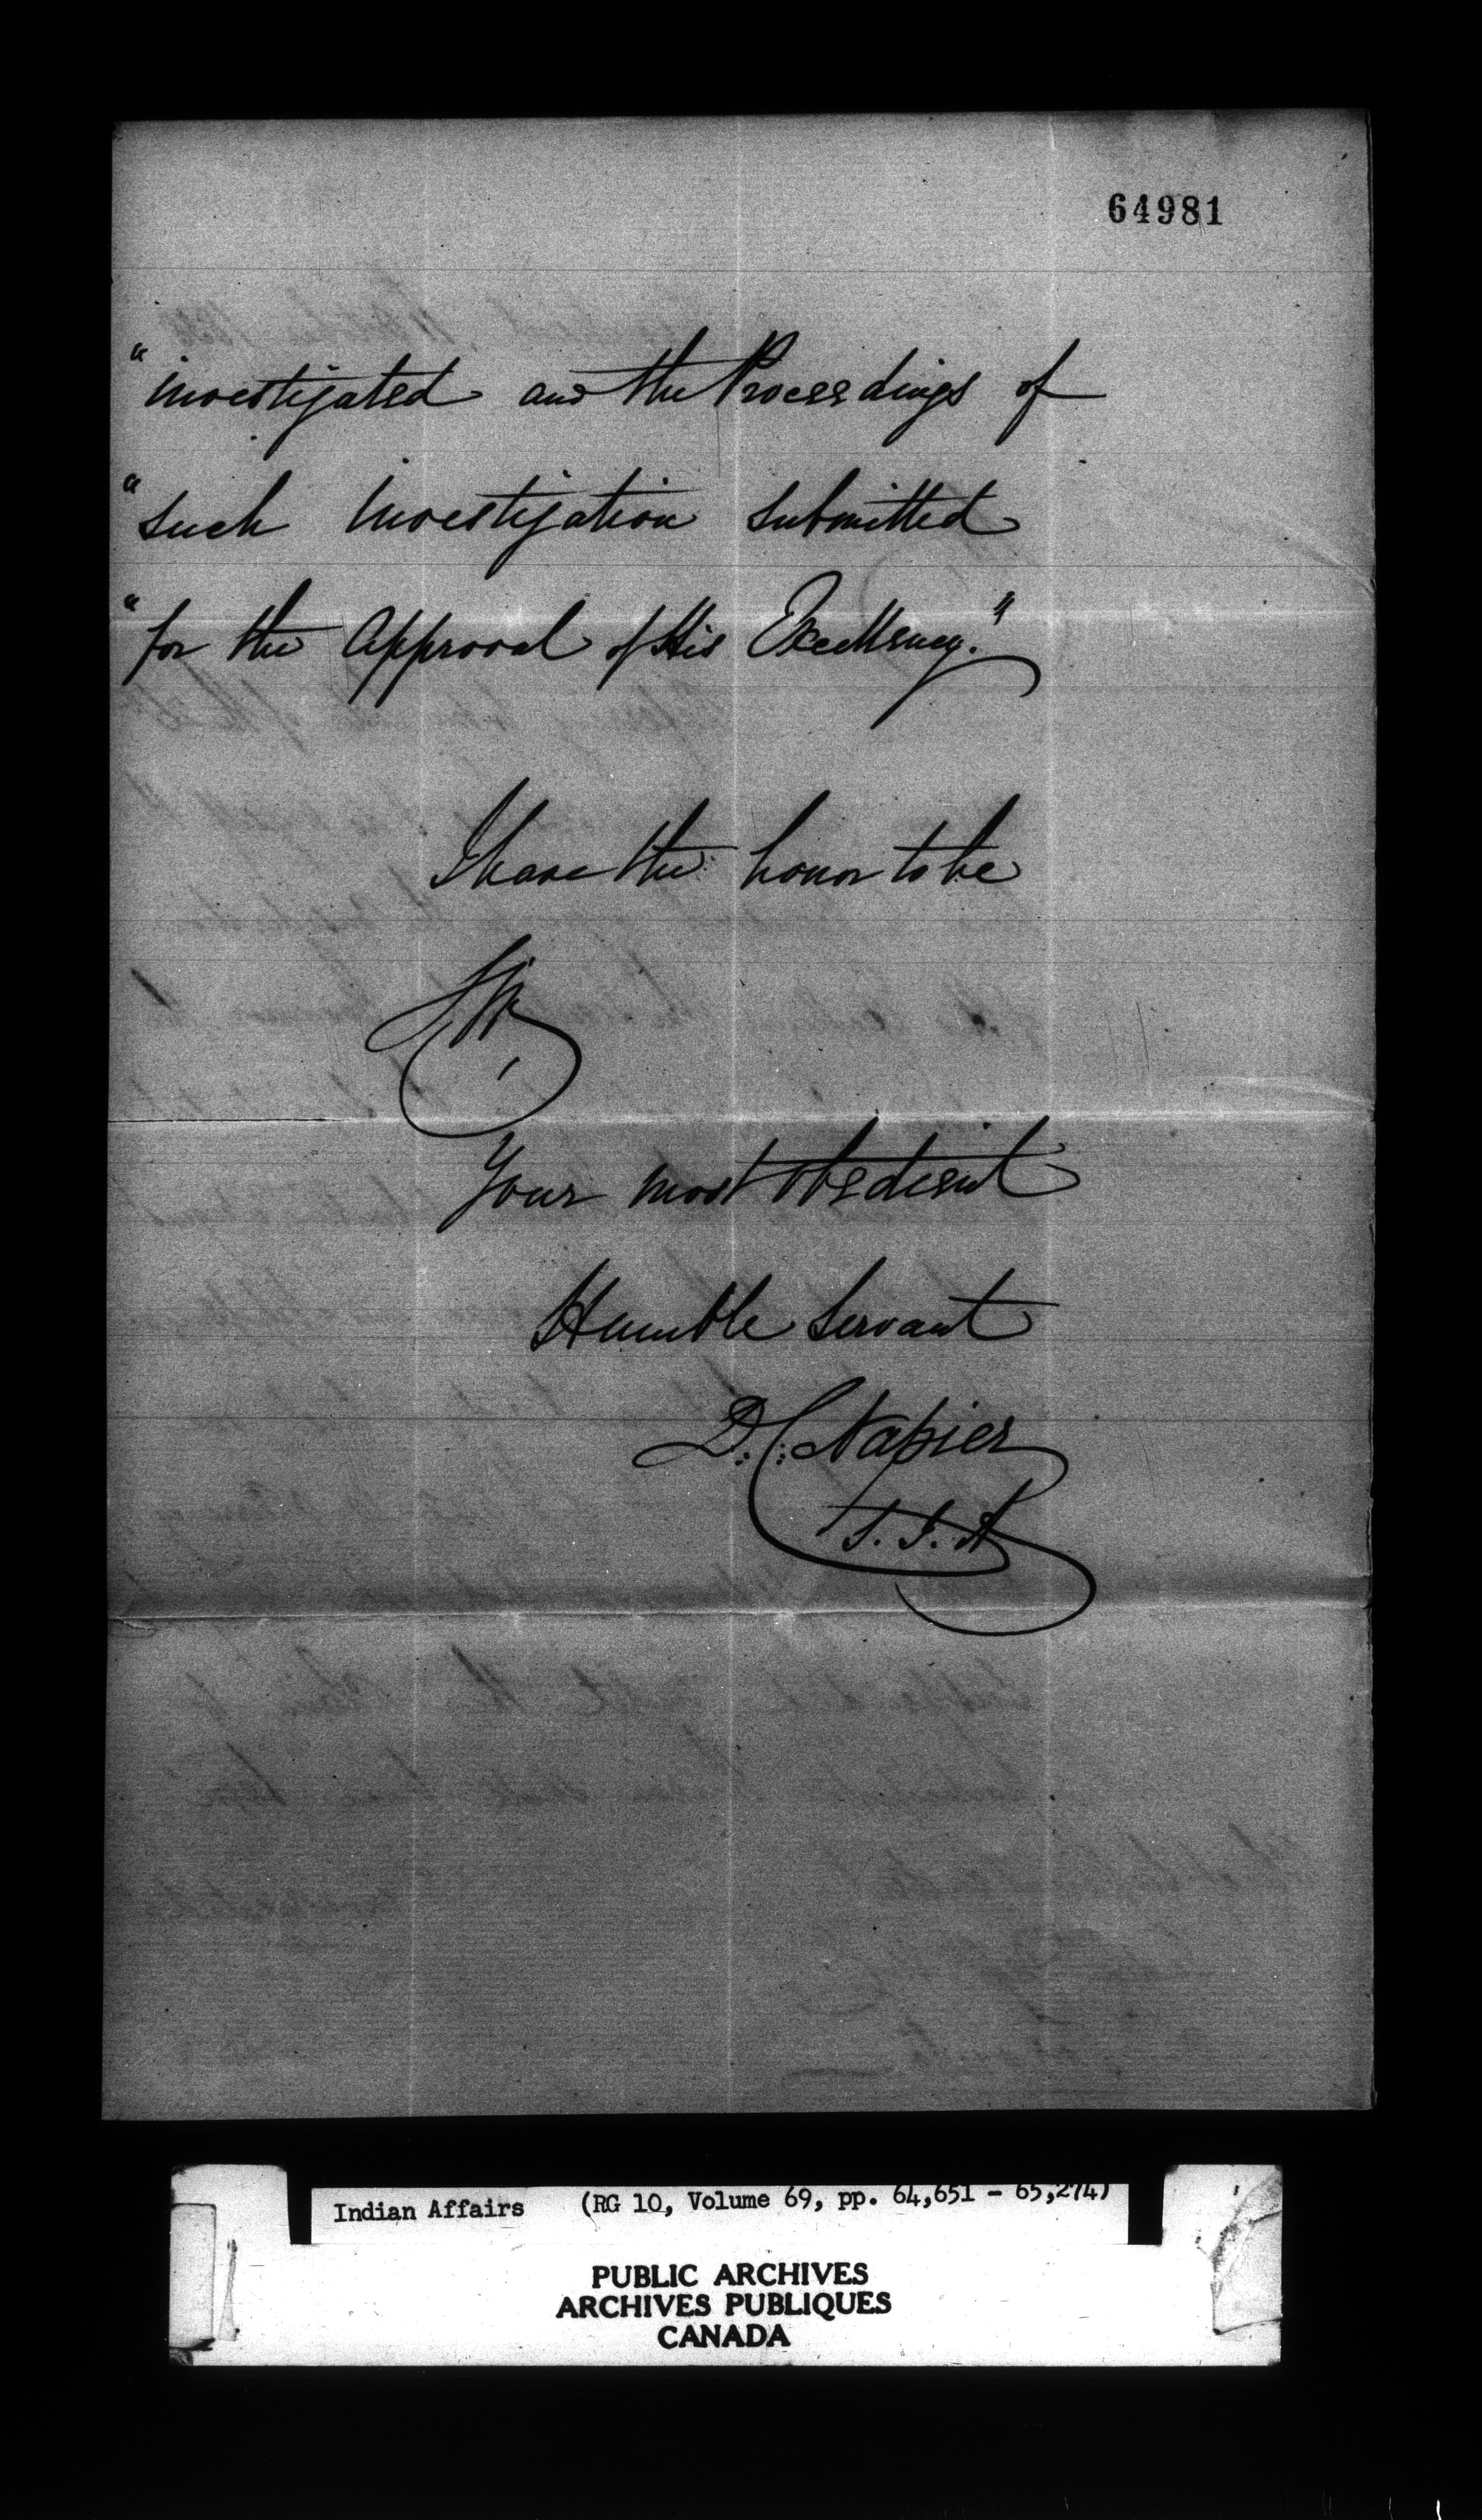 64981
"investigated and the Proceedings of
"such Investigation submitted
"for the Approval of His Excellency."
I have the honor to be
Sir,
Your most obedient
Humble Servant
D. C. Napier
S. I. A
Indian Affairs (RG 10, Volume 69, pp. 64,651 - 65,274)
PUBLIC ARCHIVES
ARCHIVES PUBLIQUES
CANADA